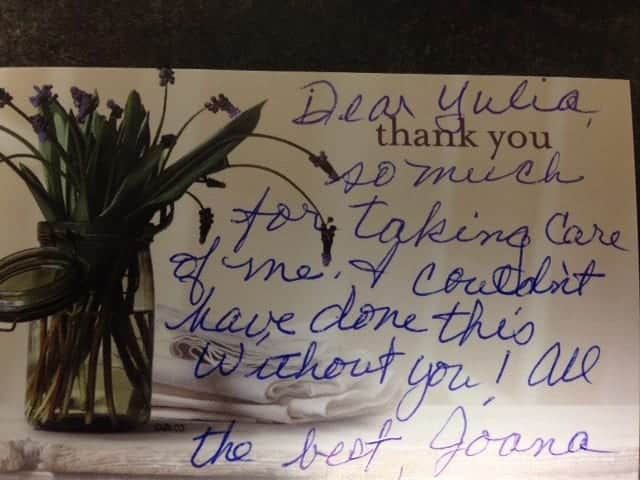 Dear Yulia,
thank you
so much
for taking care
of me. I couldn't
have done this
Without you! All
the best, Joana